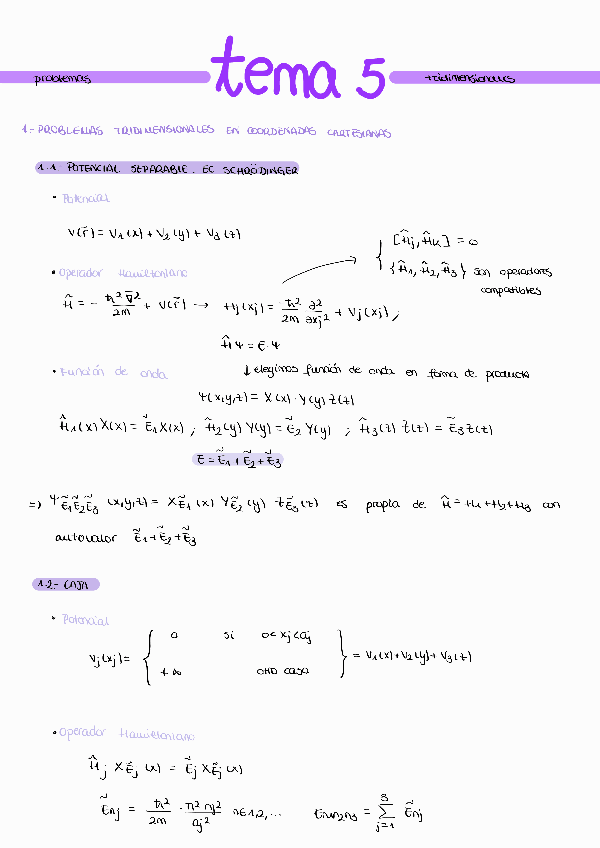 problemas tema 5 tridimensionales
1.- PROBLEMAS TRIDIMENSIONALES EN COORDENADAS CARTESIANAS
1.1 POTENCIAL SEPARABLE. EC SCHRÖDINGER
• Potencial
V(r⃗) = V₁(x) + V₂(y) + V₃(z)
[Ĥj, Ĥk] = 0
{Ĥ₁, Ĥ₂, Ĥ₃} son operadores
compatibles
• Operador Hamiltoniano
Ĥ = - ħ²∇⃗²/2m + V(r⃗) → Hj(xj) = ħ²/2m ∂²/∂xj² + Vj(xj);
ĤΨ = E·Ψ
• Función de onda ↓ elegimos función de onda en forma de producto
Ψ(x,y,z) = X(x)·Y(y) Z(z)
Ĥ₁(x) X(x) = Ẽ₁ X(x) ; Ĥ₂(y) Y(y) = Ẽ₂ Y(y) ; Ĥ₃(z) Z(z) = Ẽ₃ Z(z)
E = Ẽ₁ + Ẽ₂ + Ẽ₃
=) Ψ Ẽ₁Ẽ₂Ẽ₃ (x,y,z) = XẼ₁(x) YẼ₂(y) ZẼ₃(z) es propia de Ĥ = H₁ + H₂ + H₃ con
autovalor Ẽ₁ + Ẽ₂ + Ẽ₃
1.2.- CAJA
• Potencial
Vj(xj) = { 0 si 0<xj<aj
+∞ otro caso } = V₁(x) + V₂(y) + V₃(z)
• Operador Hamiltoniano
Ĥj XẼj(x) = Ẽj XẼj(x)
Ẽnj = ħ²/2m · π² nj²/aj² n∈1,2,... En₁n₂n₃ = Σ³j=1 Ẽnj